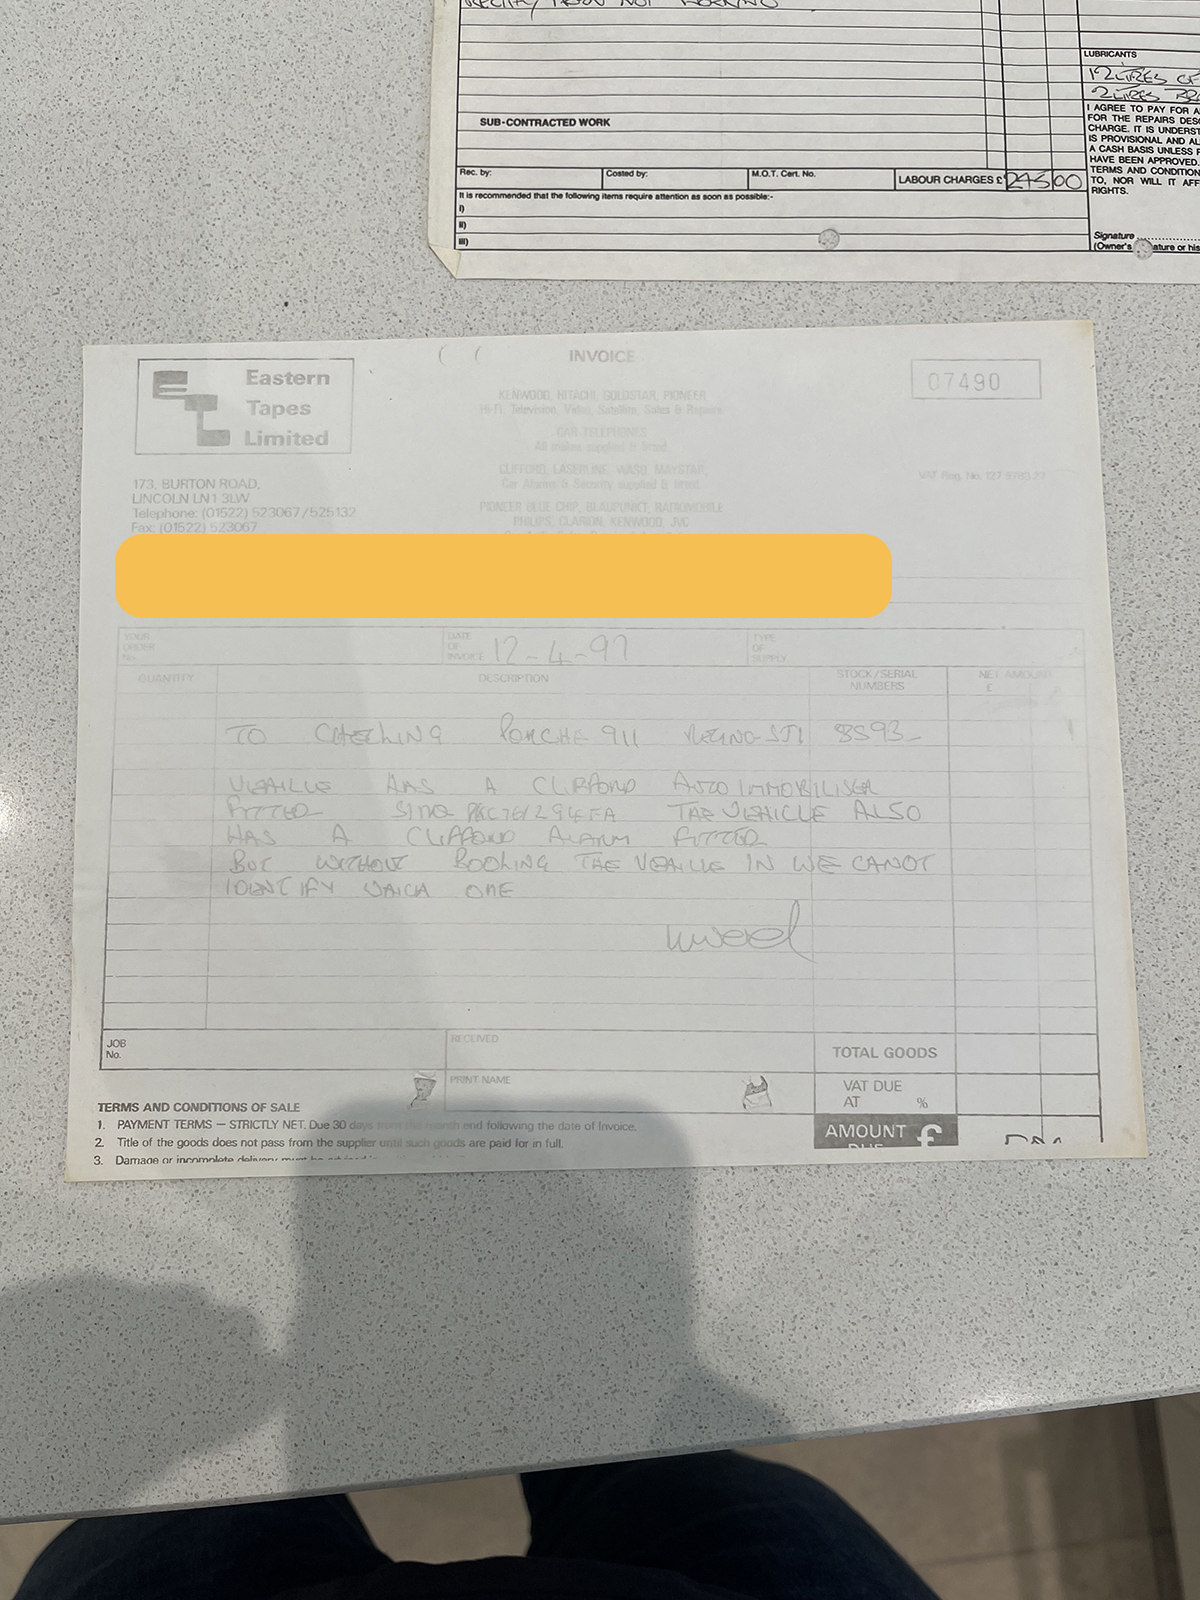 NOT WORKING
LUBRICANTS
12 LITRES OF
2 LITRES
I AGREE TO PAY FOR A
FOR THE REPAIRS DESC
CHARGE. IT IS UNDERST
IS PROVISIONAL AND AL
A CASH BASIS UNLESS P
HAVE BEEN APPROVED.
TERMS AND CONDITION
TO, NOR WILL IT AFF
RIGHTS.
SUB-CONTRACTED WORK
Rec. by:
Costed by:
M.O.T. Cert. No.
LABOUR CHARGES £ 245 00
It is recommended that the following items require attention as soon as possible:-
i)
ii)
iii)
Signature
(Owner's signature or his
INVOICE
Eastern
Tapes
Limited
07490
KENWOOD, HITACHI, GOLDSTAR, PIONEER
Hi-Fi, Television, Video, Satellite, Sales & Repairs
CAR TELEPHONES
All makes supplied & fitted
CLIFFORD, LASERLINE, WASO, MAYSTAR,
Car Alarms & Security supplied & fitted.
PIONEER BLUE CHIP, BLAUPUNKT, RADIOMOBILE
PHILIPS, CLARION, KENWOOD, JVC
VAT Reg. No. 127
173, BURTON ROAD,
LINCOLN LN1 3LW
Telephone: (01522) 523067/525132
Fax: (01522) 523067
YOUR ORDER No.
DATE OF INVOICE 12-4-97
TYPE OF SUPPLY
QUANTITY
DESCRIPTION
STOCK/SERIAL NUMBERS
NET AMOUNT £
TO CHECKING PORCHE 911
VEHICLE HAS A CLIFFORD AUTO IMMOBILISER
FITTED THE VEHICLE ALSO
HAS A CLIFFORD ALARM FITTED
BUT WITHOUT BOOKING THE VEHICLE IN WE CANOT
IDENTIFY WHICH ONE
JOB No.
RECEIVED
PRINT NAME
TOTAL GOODS
VAT DUE AT %
AMOUNT DUE £
TERMS AND CONDITIONS OF SALE
1. PAYMENT TERMS — STRICTLY NET. Due 30 days from the month end following the date of Invoice.
2. Title of the goods does not pass from the supplier until such goods are paid for in full.
3. Damage or incomplete delivery must be